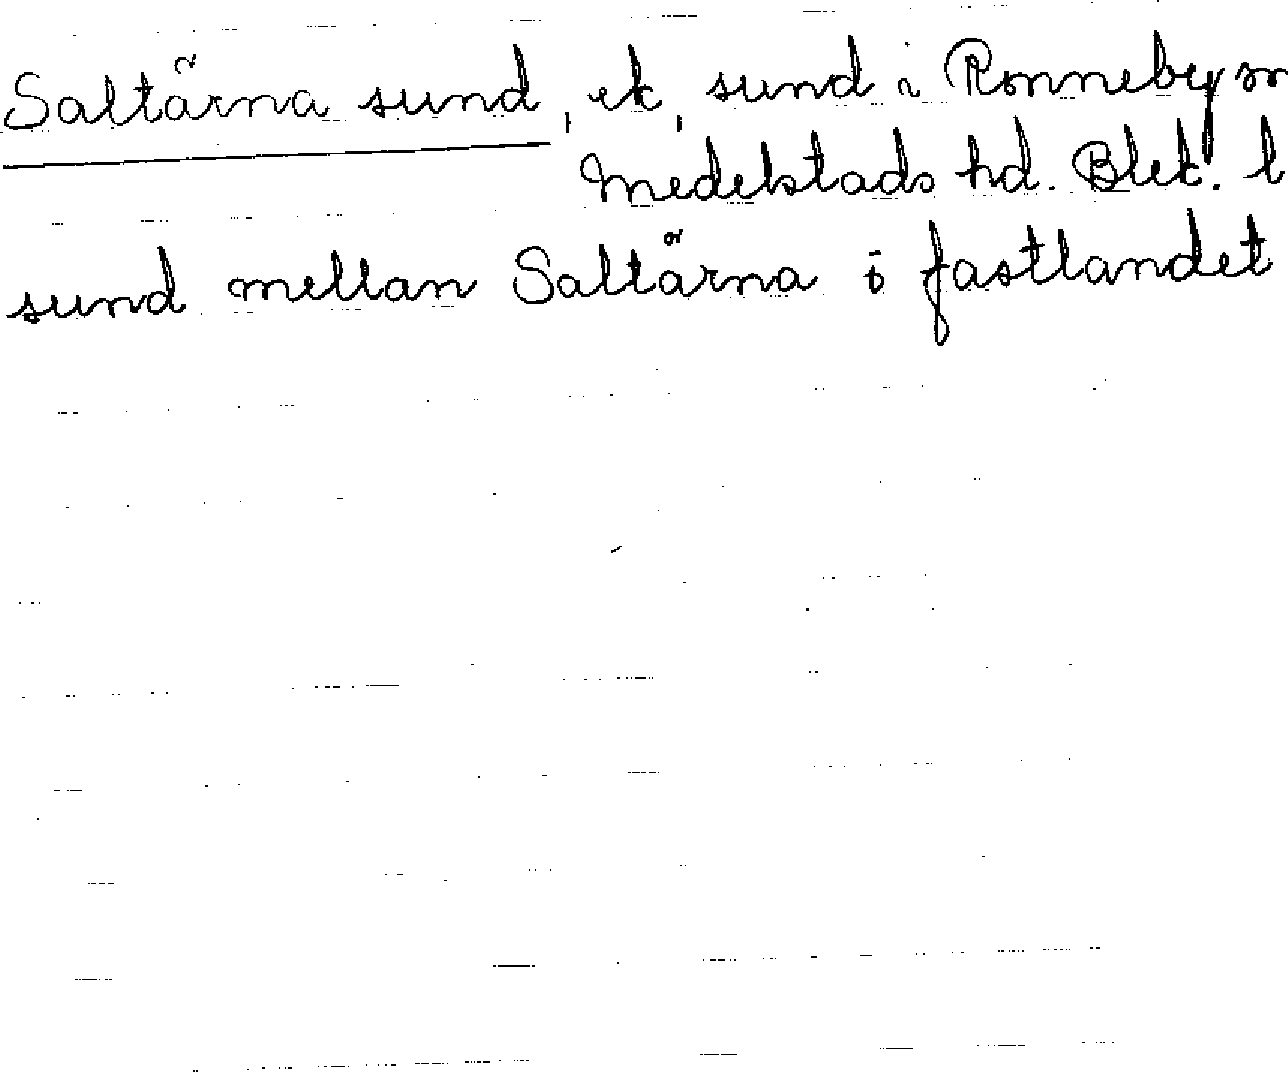 Saltärna sund, ek, sund i Ronneby
Medelstads hd. Blek. l
sund mellan Saltärna o fastlandet